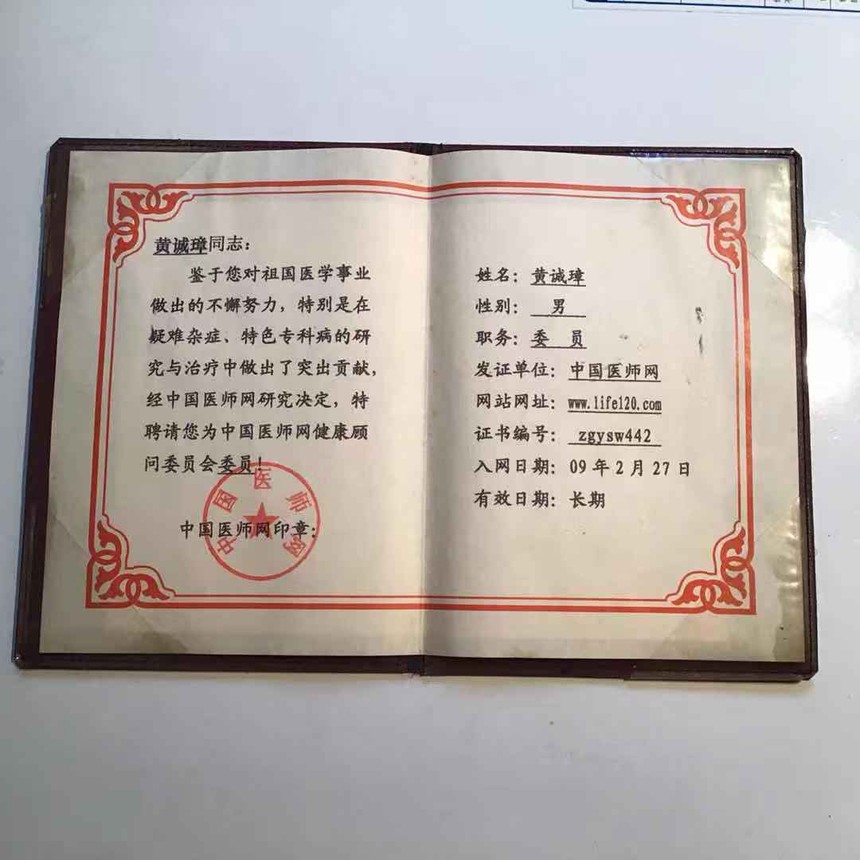 黄诚璋同志：
鉴于您对祖国医学事业
做出的不懈努力，特别是在
疑难杂症、特色专科病的研
究与治疗中做出了突出贡献，
经中国医师网研究决定，特
聘请您为中国医师网健康顾
问委员会委员！
中国医师网印章：
中国医师网
姓名：黄诚璋
性别：男
职务：委 员
发证单位：中国医师网
网站网址：www.life120.com
证书编号：zgysw442
入网日期：09年2月27日
有效日期：长期